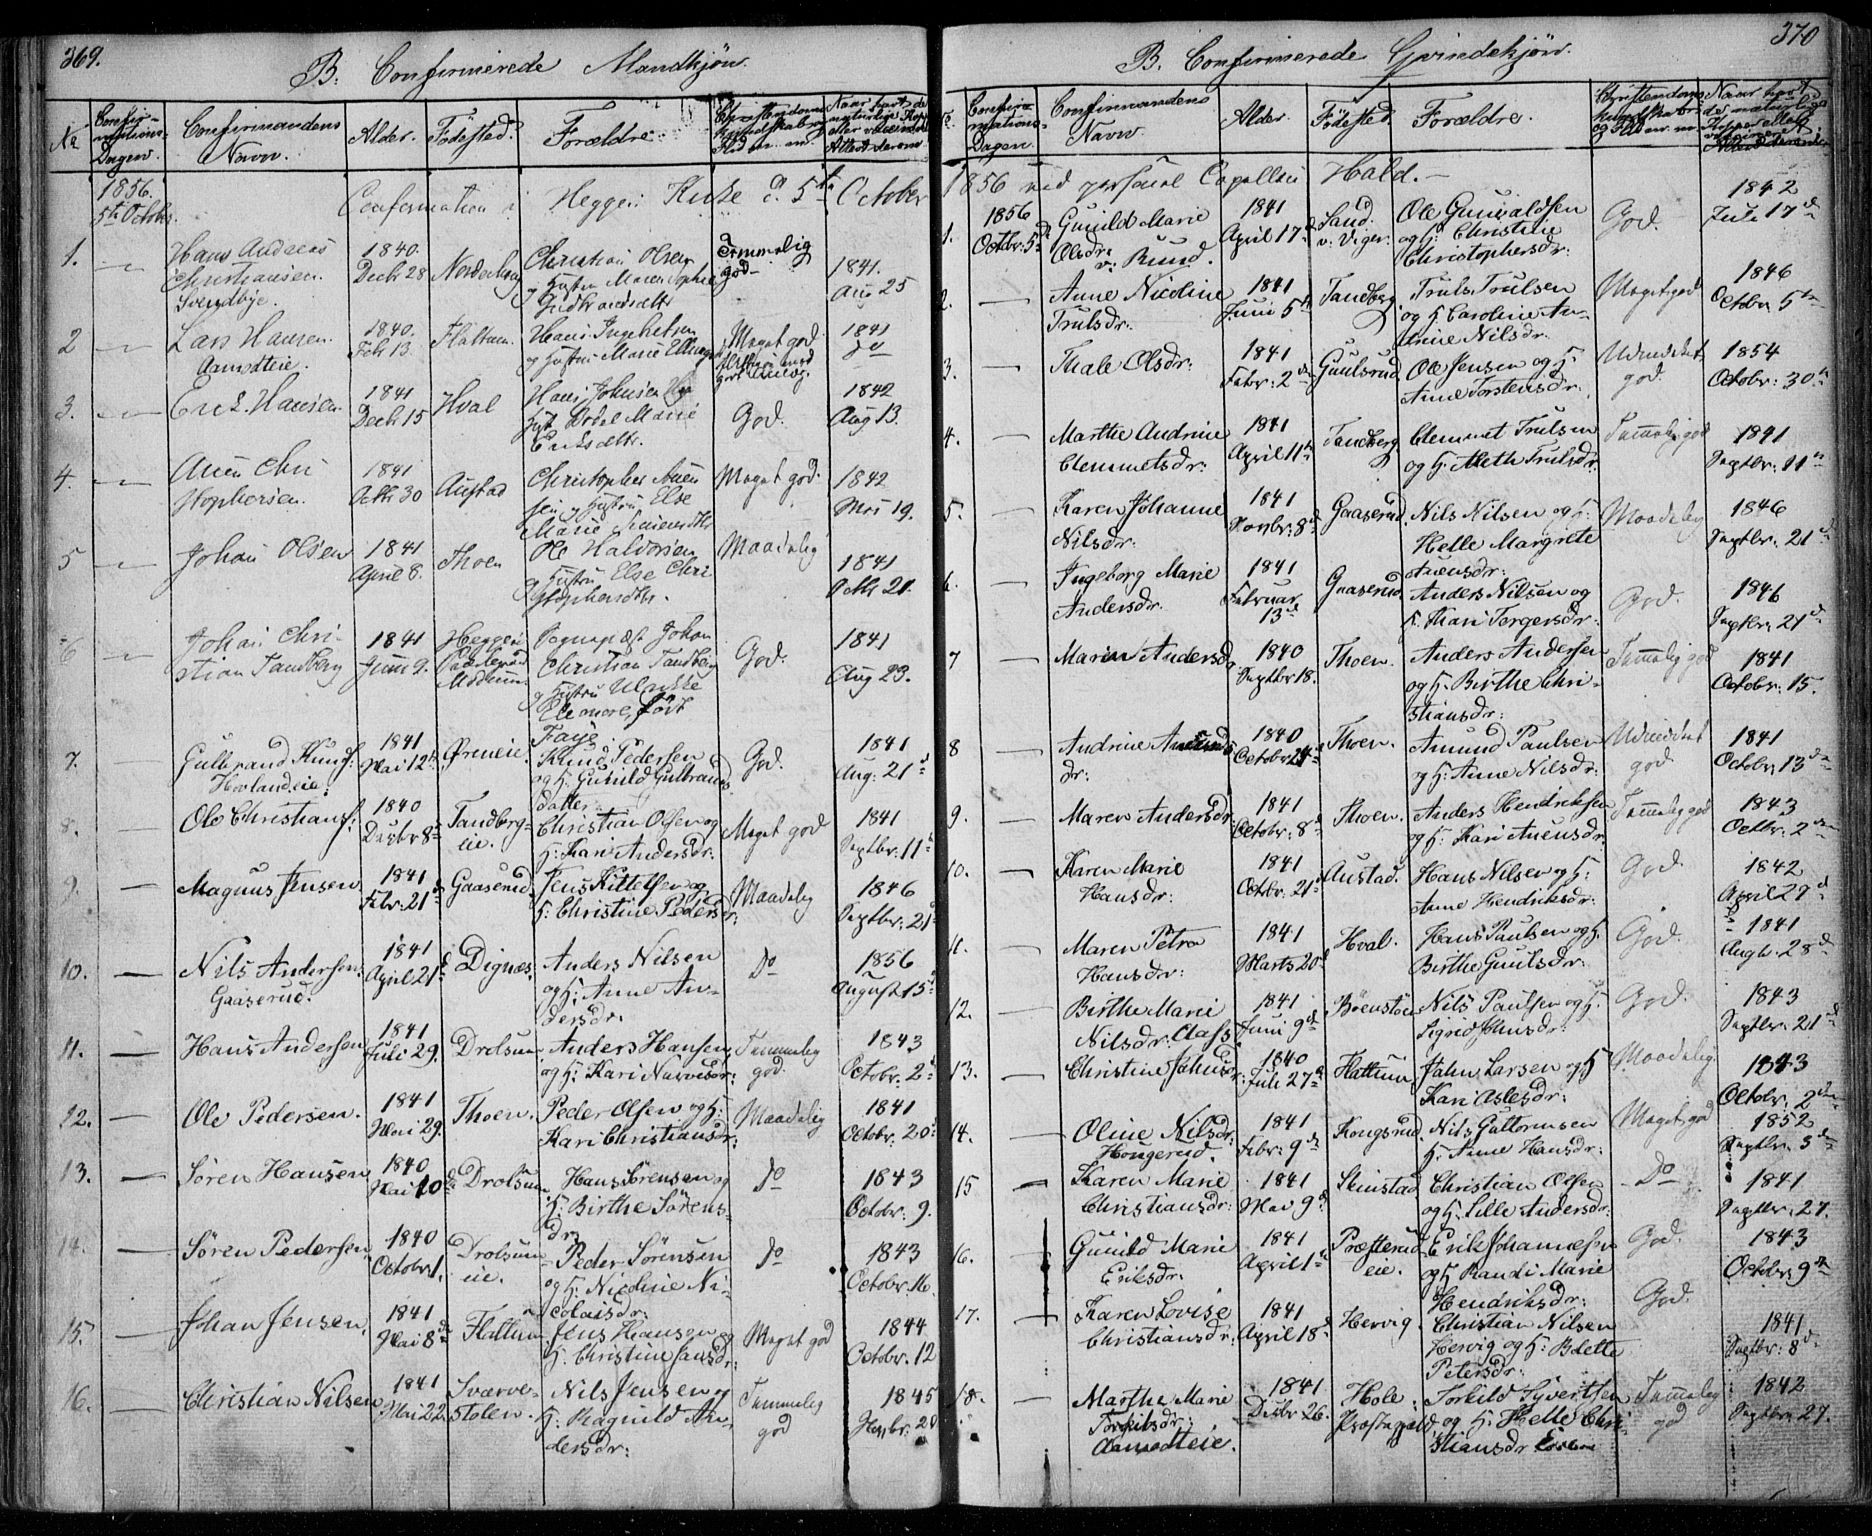 369.
B. Confirmerede Mandkjøn.
No
Confir-
mations-
Dagen.
Confirmandens
Navn.
Alder.
Födested.
Forældre.
1856.
5te Octobr.
Confirmation i Heggen Kirke d. 5te October
1. Hans Andreas
Christiansen.
Svendbye.
1840.
Decbr 28
Christian Olsen
og Hustru Maren Sophie
Temmelig
god
1841.
Aug 25
2 Lars Hansen.
Aamodteie.
1840.
Febr 13
Flattum.
Hans Ingebretsen
og Hustru Marie
Meget god
1841
do
3. Erik Hansen.
1841
Decbr 15
Hval
Hans Johnsen
Marie
Eriksdttr.
God.
1842
Aug 13.
4. Auen Chri
stophersen.
1841
Octbr 30
Austad
Christopher Auen
sen og Hustru Else
Marie
Meget god.
1842
Mai 19.
5 Johan Olsen
1841
April 8.
Thoen
Ole Halvorsen
og Hustru Else Chri
stophersdttr.
Maadelig
1841
Octbr 21.
6 Johan Chri-
stian Tandberg
1841
Juni 9.
Heggen
Modum
Sognepræst Johan
Christian Tandberg
og Hustru Ulrikke
Eleonore, født
Faye.
God.
1841
Aug 23.
7. Gulbrand Knuds:
Hovlandeie.
1841
Mai 12te
Øreneie.
Knud Pedersen
og H: Gunild Gulbrands
datter.
God.
1841
Aug: 21d
8. Ole Christians:
1840
Decbr 8de
Tandberg-
eie.
Christian Olsen og
H: Kari Andersdr:
Meget god
1841
Septbr: 11te
9. Magnus Jensen
1841
Febr: 21d
Gaaserud.
Jens Kittelsen og
H: Christine Pedersdr:
Maadelig
1846
Septbr: 21d
10. Nils Andersen
Gaaserud.
1841
April 21d
Dignæs.
Anders Nilsen
og H: Anne An-
dersdr.
Do
1856
August 15d
11. Hans Andersen
1841
Juli 29.
Drolsum.
Anders Hansen
og H: Kari Narvesdr:
Temmelig
god.
1843
Octobr: 2d
12. Ole Pedersen.
1841
Mai 29.
Thoen.
Peder Olsen og H:
Kari Christiansdr:
Maadelig
1841
Octobr: 20d
13. Sören Hansen
1840
Mai 10de
Drolsum.
Hans Sörensen og
H: Birthe Sörens-
dr:
Do
1843
Octobr: 9.
14. Sören Pedersen.
1840
Octobr 1.
Drolsum
eie.
Peder Sörensen
og H: Nicoline Ni-
colaisdr:
Do
1843
Octobr. 16.
15. Johan Jensen.
1841
Mai 8de
Flattum
Jens Hansen og
H: Christine Jansdr:
Meget god
1844
Octobr. 12
16. Christian Nilsen
1841
Mai 22
Sværve-
stolen.
Nils Jensen og
H: Ragnild An-
dersdr:
Temmelig
god
1845
Novbr: 20
370
B. Confirmerede Qvindekjön.
Confir-
mations-
Dagen.
Confirmandens
Navn.
Alder.
Födested.
Forældre.
1856 ved personel Capellan Hald.
1. 1856
Octbr: 5d
Gunild Marie
Olsdr.
1841
April 17d
Sand
v. Viger.
Ole Gunvaldsen
og H: Christine
Christophersdr:
God.
1842
Juli 17d
2. Anne Nicoline
Trulsdr.
1841
Juni 5te
Tandberg
Truls Trulsen
og H: Caroline An-
trine Nilsdr.
Meget god
1846
October 5te
3. Thale Olsdr.
1841
Febr: 2d
Guulsrud
Ole Jensen og H:
Anne Torstensdr.
Udmerket
god.
1854
Octobr: 30te
4. Marthe Andrine
Clemmetsdr:
1841
April 11te
Tandberg
Clemmet Trulsen
og H: Mette Trulsdr.
Temmelig god
1841
Septbr: 11te
5. Karen Johanne
Nilsdr:
1841
Novbr: 8d
Gaaserud.
Nils Nilsen og H:
Helle Margrete
Auensdr:
Maadelig
1846
Septbr: 21d
6. Ingeborg Marie
Andersdr.
1841
Februar
13d
Gaaserud
Anders Nilsen og
H. Kari Torgersdr:
God.
1846
Septbr: 21d
7 Maren Andersdr
1840
Septbr 18.
Thoen.
Anders Andersen
og H. Birthe Chri-
stiansdr:
Temmelig god
1841
Octobr: 15.
8 Andrine Amunds
dr:
1840
October 24d
Thoen.
Amund Paulsen
og H: Anne Nilsdr:
Udmerket
god.
1841
Octobr 13de
9. Maren Andersdr:
1841
Octobr: 8d
Thoen.
Anders Hendriksen
og H: Kari Auensdr:
Temmelig god
1843
Octbr: 2den
10. Karen Marie
Hansdr:
1841
Octbr: 21d
Austad.
Hans Nilsen og H:
Anne Hendriksdr:
God
1842
April 27d
11. Maren Petra
Hansdr:
1841
Marts 20d
Hval.
Hans Paulsen og H.
Birthe Guulsdr:
God.
1841
Augb. 28d
12. Birthe Marie
Nilsdr: Aass
1841
Juni 9d
Nils Paulsen og H.
Sigrid Johnsdr:
God.
1843
Septbr: 21d
13. Christine Jahnsdr:
1840
Juli 27d
Flattum
Jahn Larsen og H
Kari Aslesdr:
Maadelig
1843
Octobr. 2den
14. Oline Nilsdr:
Hougerud.
1841
Febr: 9d
Kongsrud.
Nils Guttormsen
H. Anne Hansdr:
Meget god
1852
Septbr. 5d
15 Karen Marie
Christiansdr:
1841
Mai 9d
Skinstad
Christian Olsen
og H. Lille Andersdr:
Do
1841
Septbr. 27.
16. Gunild Marie
Eriksdr.
1841
April 1d
Præsterud
eie.
Erik Johannesen
og H Randi Marie
Hendriksdr:
God.
1843
Octobr 9de
17. Karen Lovise
Christiansdr.
1841
April 18d
Hervig.
Christian Nilsen
Hervig og H: Bolette
Petersdr:
God.
1841
Septbr: 8d
18. Marthe Marie
Torkildsdr:
Aamodteie.
1841
Decbr 26.
Hole
Præstegjeld
Torkild Syvertsen
og H. Helle Chri-
stiansdr
Temmelig
god
1842
Septbr. 27.